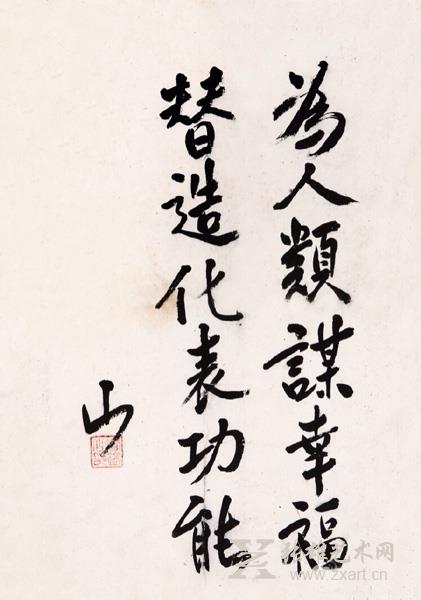 為人類謀幸福
替造化表功能
山
www.zxart.cn